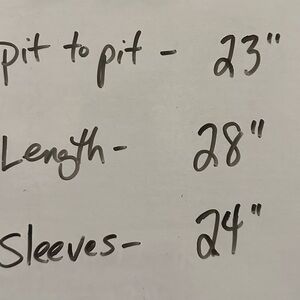 pit to pit - 23"
Length - 28"
Sleeves - 24"